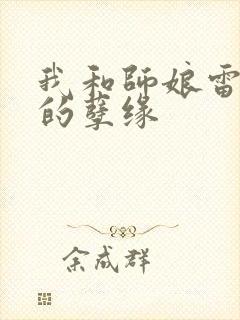 我和師娘雷
的孽缘
余成群